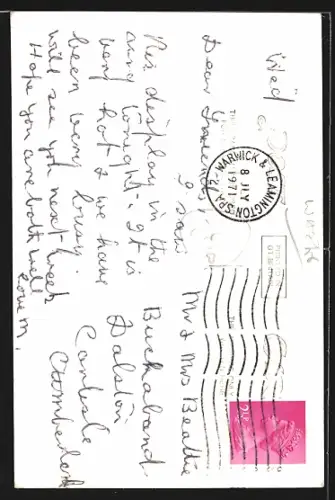 Wed
Dear Grandma,
I saw
this display in the
arms tonight - It is
very hot & we have
been very busy.
will see you next week
Hope you are both well
love M.
Mr & Mrs Beattie
Buckabank
Dalston
Carlisle
Cumberland
WARWICK & LEAMINGTON SPA
8 JLY
1971
2½P